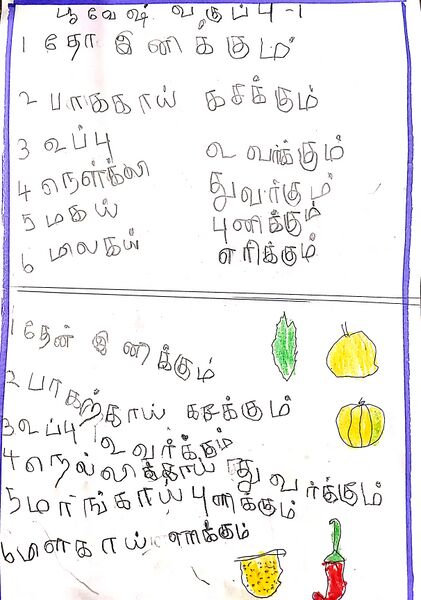 பூவேஷ் வகுப்பு -1
1 தோ இனிக்கும்
2 பாககாய் கசக்கும்
3 உப்பு உவர்க்கும்
4 நெள்க்லி துவர்கும்
5 மகய் புளிக்கும்
6 மிலகய் எரிக்கும்
1 தேன் இனிக்கும்
2 பாகற்காய் கசக்கும்
3 உப்பு உவர்க்கும்
4 நெல்லிக்காய் துவர்க்கும்
5 மாங்காய் புளிக்கும்
6 மிளகாய்